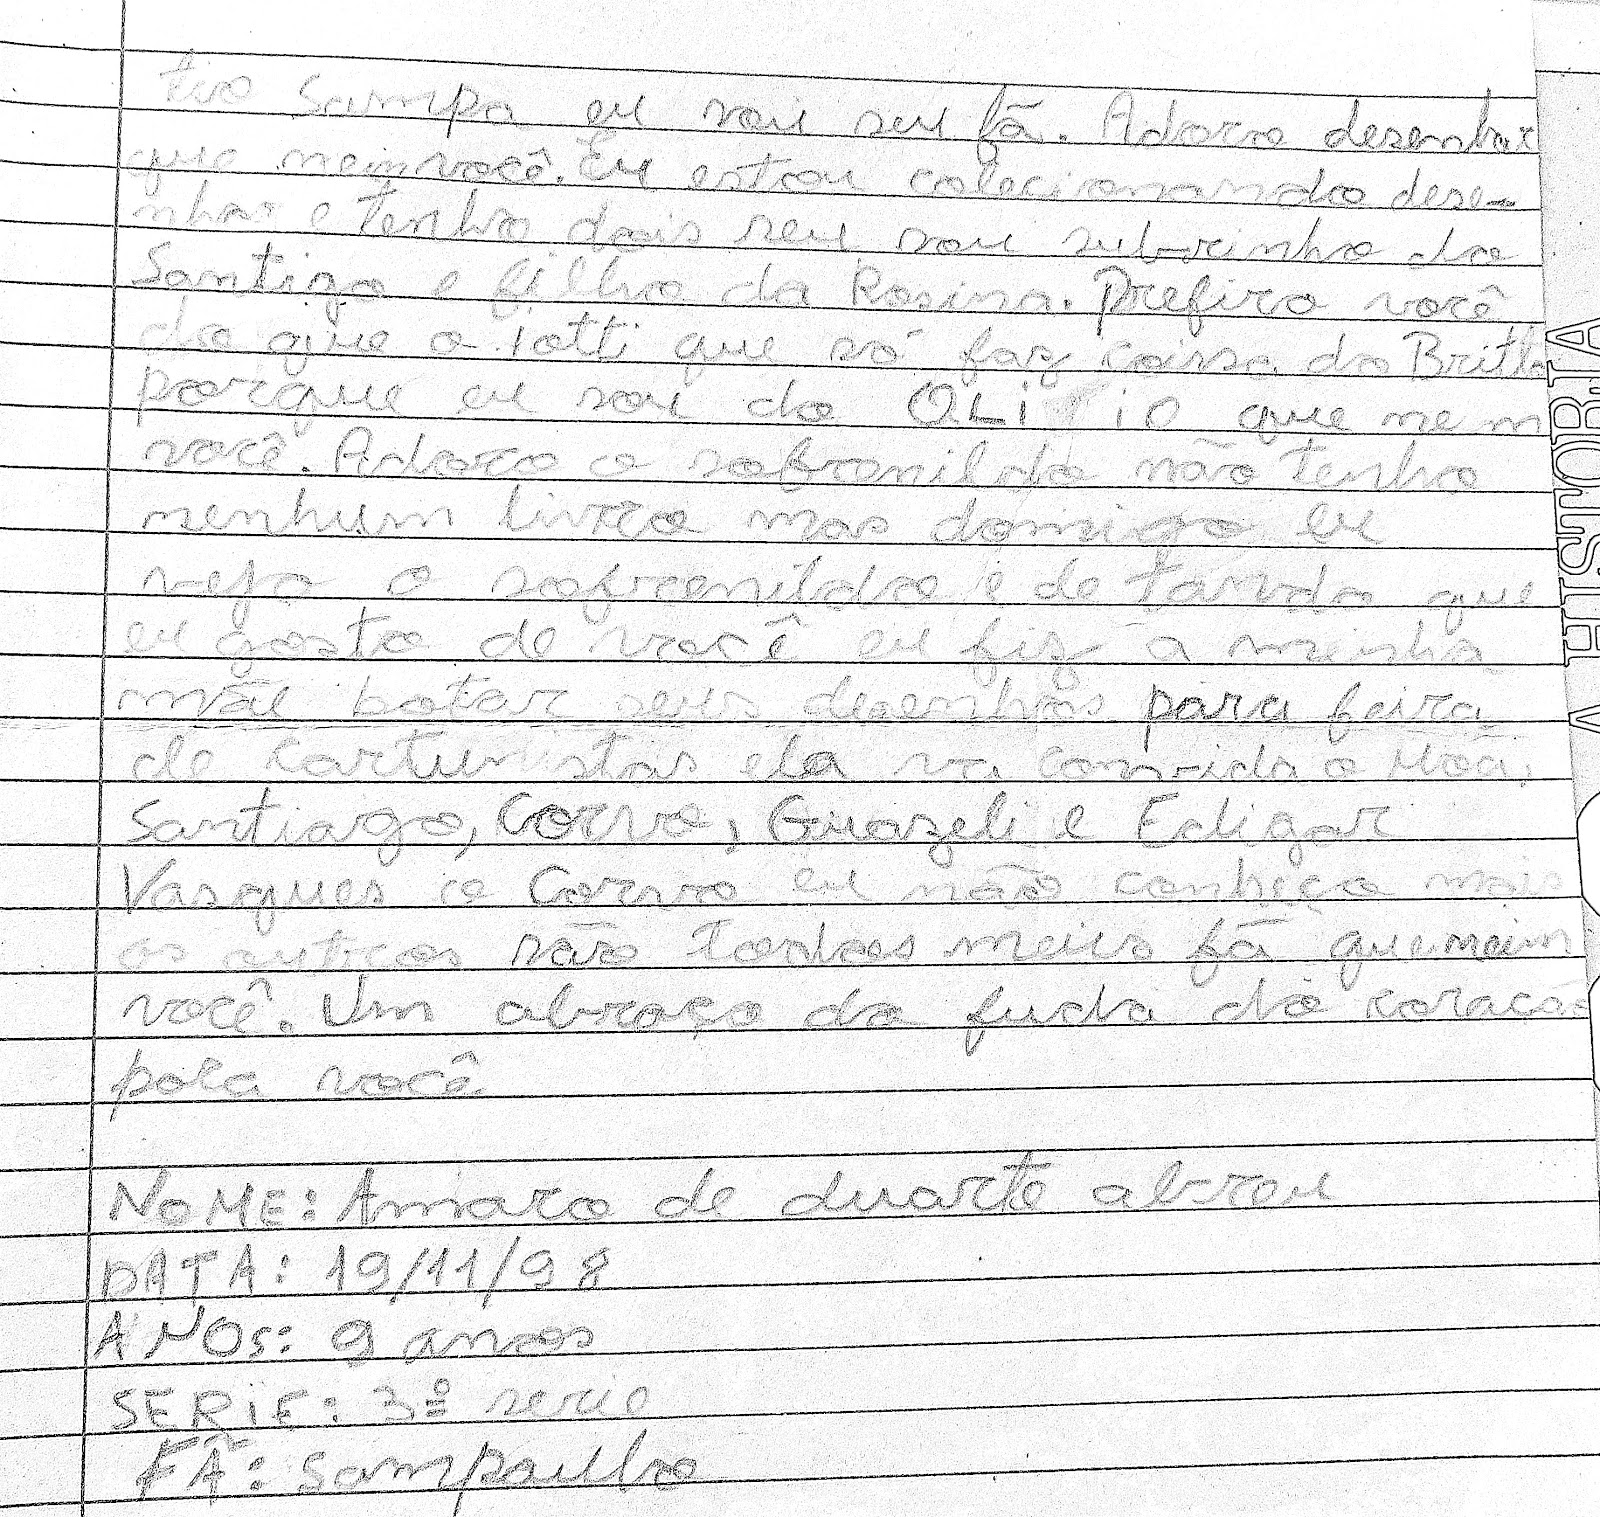 tio Sampa eu sou seu fã. Adoro desenhar
que neim você. Eu estou colecionando dese-
nhos e tenho dois seu sou subrinho do
Santigo e filho da Rosina. Prefiro você
do que o Iotti que só faz coissa do Britto
porque eu sou do OLiviO que nem
você. Adoro o sofrenildo não tenho
nenhum livro mas domigo eu
vejo o sofrenildo e de tando que
eu gosto de você eu fiz a minha
mãe botar seus desenhos para feira
de cartunistas ela vai convida o Moa,
Santiago, Corvo, Guazeli e Edigar
Vasques o Corvo eu não conheço mais
os outros são todos meus fã que neim
você. Um abraço do fudo do coração
pora você.
NOME: Amaro de duarte abreu
DATA: 19/11/98
ANOS: 9 anos
SERIE: 3ª serie
FÃ: Sampaulho
A HISTORIA